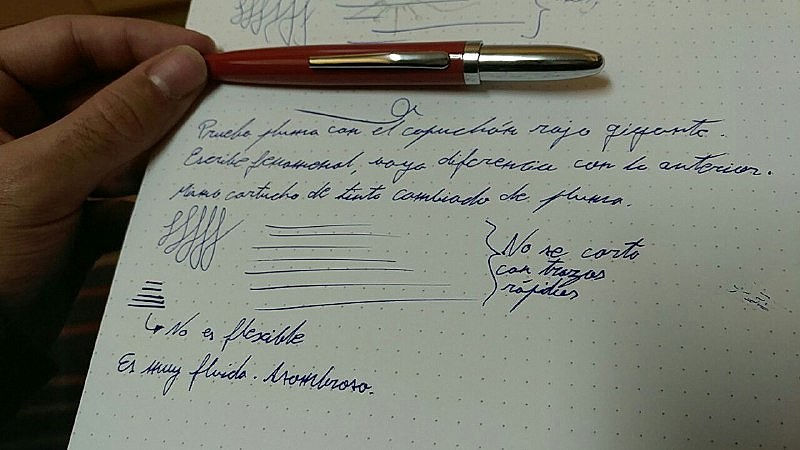 Prueba pluma con el capuchón rojo gigante.
Escribe fenomenal, vaya diferencia con la anterior.
Mismo cartucho de tinta cambiado de pluma.
No se corta
con trazos
rápidos
No es flexible
Es muy fluida. Asombroso.